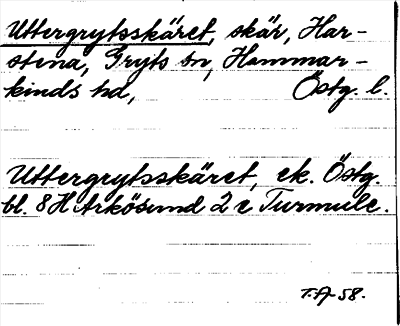 Uttergrytsskäret, skär, Har-
stena, Gryts sn, Hammar-
kinds hd, Östg. l.
Uttergrytsskäret, ek. Östg.
bl. 8 H Arkösund 2 c Turmulc.
T.A-58.